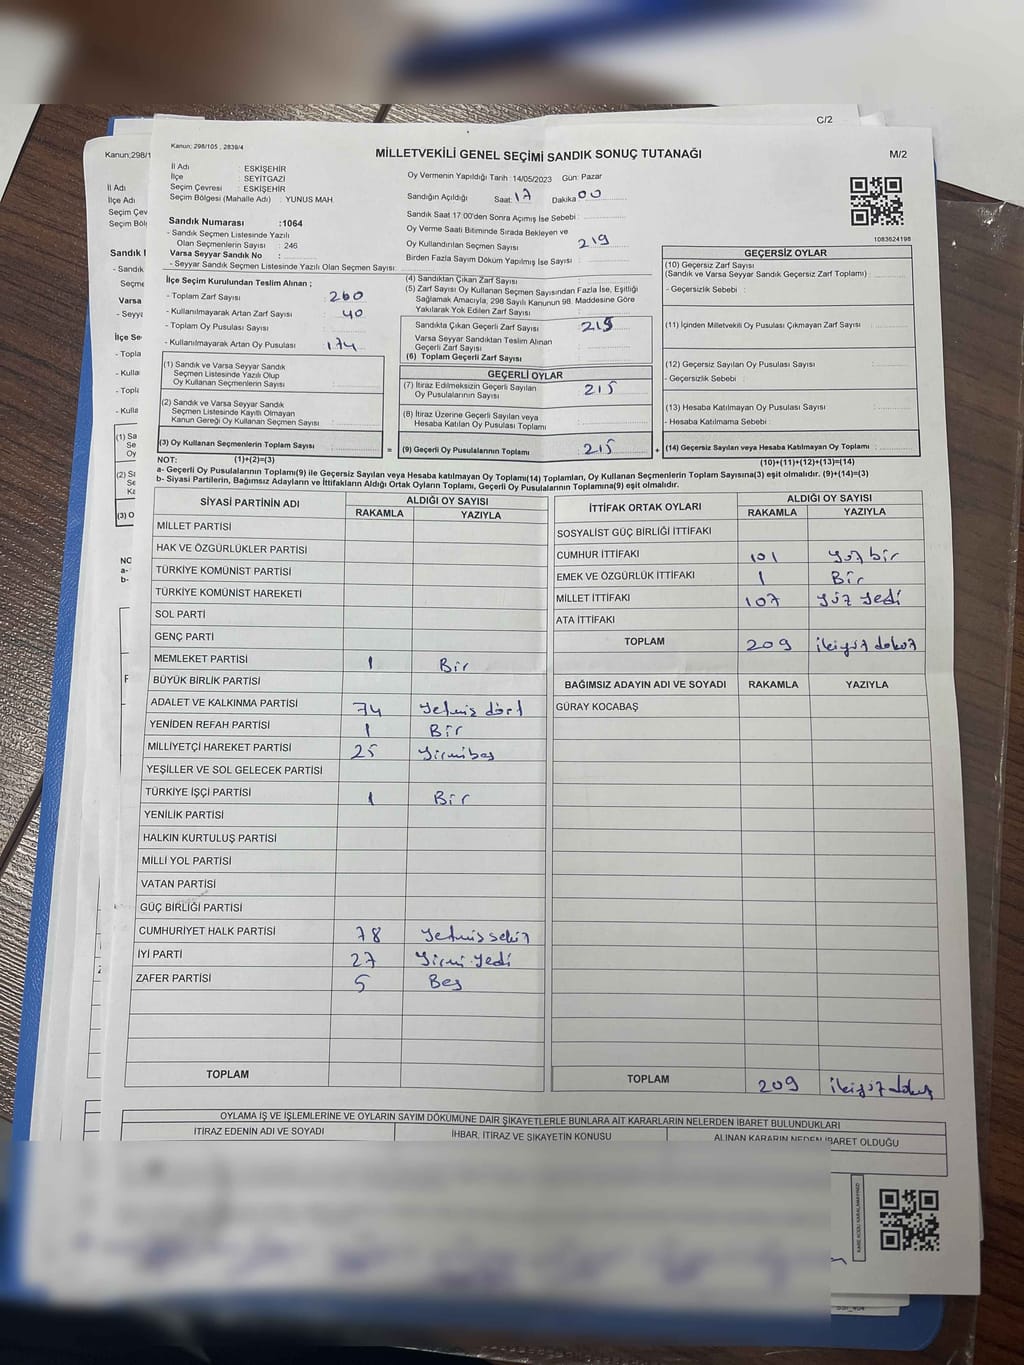 C/2
Kanun; 298/105 , 2839/4
MİLLETVEKİLİ GENEL SEÇİMİ SANDIK SONUÇ TUTANAĞI
M/2
İl Adı : ESKİŞEHİR
İlçe : SEYİTGAZİ
Seçim Çevresi : ESKİŞEHİR
Seçim Bölgesi (Mahalle Adı) : YUNUS MAH
Oy Vermenin Yapıldığı Tarih :14/05/2023 Gün: Pazar
Sandığın Açıldığı Saat: 17 Dakika 00
Sandık Saat 17.00'den Sonra Açımış İse Sebebi :
Oy Verme Saati Bitiminde Sırada Bekleyen ve
Oy Kullandırılan Seçmen Sayısı : 219
Birden Fazla Sayım Döküm Yapılmış İse Sayısı :
Sandık Numarası :1064
- Sandık Seçmen Listesinde Yazılı
Olan Seçmenlerin Sayısı : 246
Varsa Seyyar Sandık No :
- Seyyar Sandık Seçmen Listesinde Yazılı Olan Seçmen Sayısı:
1083624198
İlçe Seçim Kurulundan Teslim Alınan ;
- Toplam Zarf Sayısı : 260
- Kullanılmayarak Artan Zarf Sayısı : 40
- Toplam Oy Pusulası Sayısı :
- Kullanılmayarak Artan Oy Pusulası : 174
(1) Sandık ve Varsa Seyyar Sandık
Seçmen Listesinde Yazılı Olup
Oy Kullanan Seçmenlerin Sayısı :
(2) Sandık ve Varsa Seyyar Sandık
Seçmen Listesinde Kayıtlı Olmayan
Kanun Gereği Oy Kullanan Seçmen Sayısı :
(3) Oy Kullanan Seçmenlerin Toplam Sayısı :
(4) Sandıktan Çıkan Zarf Sayısı :
(5) Zarf Sayısı Oy Kullanan Seçmen Sayısından Fazla İse, Eşitliği
Sağlamak Amacıyla, 298 Sayılı Kanunun 98. Maddesine Göre
Yakılarak Yok Edilen Zarf Sayısı :
Sandıkta Çıkan Geçerli Zarf Sayısı : 215
Varsa Seyyar Sandıktan Teslim Alınan
Geçerli Zarf Sayısı :
(6) Toplam Geçerli Zarf Sayısı :
GEÇERLİ OYLAR
(7) İtiraz Edilmeksizin Geçerli Sayılan
Oy Pusulalarının Sayısı : 215
(8) İtiraz Üzerine Geçerli Sayılan veya
Hesaba Katılan Oy Pusulası Toplamı :
= (9) Geçerli Oy Pusulalarının Toplamı : 215 +
GEÇERSİZ OYLAR
(10) Geçersiz Zarf Sayısı
(Sandık ve Varsa Seyyar Sandık Geçersiz Zarf Toplamı) :
- Geçersizlik Sebebi :
(11) İçinden Milletvekili Oy Pusulası Çıkmayan Zarf Sayısı :
(12) Geçersiz Sayılan Oy Pusulası Sayısı :
- Geçersizlik Sebebi :
(13) Hesaba Katılmayan Oy Pusulası Sayısı :
- Hesaba Katılmama Sebebi :
(14) Geçersiz Sayılan veya Hesaba Katılmayan Oy Toplamı :
NOT: (1)+(2)=(3)
(10)+(11)+(12)+(13)=(14)
a- Geçerli Oy Pusulalarının Toplamı(9) ile Geçersiz Sayılan veya Hesaba katılmayan Oy Toplamı(14) Toplamları, Oy Kullanan Seçmenlerin Toplam Sayısına(3) eşit olmalıdır. (9)+(14)=(3)
b- Siyasi Partilerin, Bağımsız Adayların ve İttifakların Aldığı Ortak Oyların Toplamı, Geçerli Oy Pusulalarının Toplamına(9) eşit olmalıdır.
SİYASİ PARTİNİN ADI
ALDIĞI OY SAYISI
RAKAMLA YAZIYLA
MİLLET PARTİSİ
HAK VE ÖZGÜRLÜKLER PARTİSİ
TÜRKİYE KOMÜNİST PARTİSİ
TÜRKİYE KOMÜNİST HAREKETİ
SOL PARTİ
GENÇ PARTİ
MEMLEKET PARTİSİ 1 Bir
BÜYÜK BİRLİK PARTİSİ
ADALET VE KALKINMA PARTİSİ 74 Yetmiş dört
YENİDEN REFAH PARTİSİ 1 Bir
MİLLİYETÇİ HAREKET PARTİSİ 25 Yirmibeş
YEŞİLLER VE SOL GELECEK PARTİSİ
TÜRKİYE İŞÇİ PARTİSİ 1 Bir
YENİLİK PARTİSİ
HALKIN KURTULUŞ PARTİSİ
MİLLİ YOL PARTİSİ
VATAN PARTİSİ
GÜÇ BİRLİĞİ PARTİSİ
CUMHURİYET HALK PARTİSİ 78 Yetmiş sekiz
İYİ PARTİ 27 Yirmi yedi
ZAFER PARTİSİ 5 Beş
TOPLAM
İTTİFAK ORTAK OYLARI
ALDIĞI OY SAYISI
RAKAMLA YAZIYLA
SOSYALİST GÜÇ BİRLİĞİ İTTİFAKI
CUMHUR İTTİFAKI 101 Yüz bir
EMEK VE ÖZGÜRLÜK İTTİFAKI 1 Bir
MİLLET İTTİFAKI 107 Yüz Yedi
ATA İTTİFAKI
TOPLAM 209 ikiyüz dokuz
BAĞIMSIZ ADAYIN ADI VE SOYADI RAKAMLA YAZIYLA
GÜRAY KOCABAŞ
TOPLAM 209 ikiyüz dokuz
OYLAMA İŞ VE İŞLEMLERİNE VE OYLARIN SAYIM DÖKÜMÜNE DAİR ŞİKAYETLERLE BUNLARA AİT KARARLARIN NELERDEN İBARET BULUNDUKLARI
İTİRAZ EDENİN ADI VE SOYADI
İHBAR, İTİRAZ VE ŞİKAYETİN KONUSU
ALINAN KARARIN NEDEN İBARET OLDUĞU